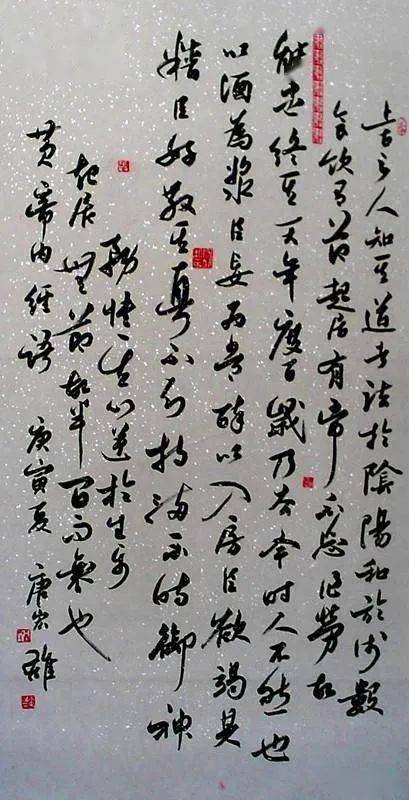 上古之人知其道者法於陰陽和於術數
食飲有節起居有常不妄作勞故
能盡終其天年度百歲乃去今時人不然也
以酒為漿以妄為常醉以入房以欲竭其
精以好散其真不知持滿不時御神
務快其心逆於生樂
起居無節故半百而衰也
黃帝內經語 庚寅夏 唐宏